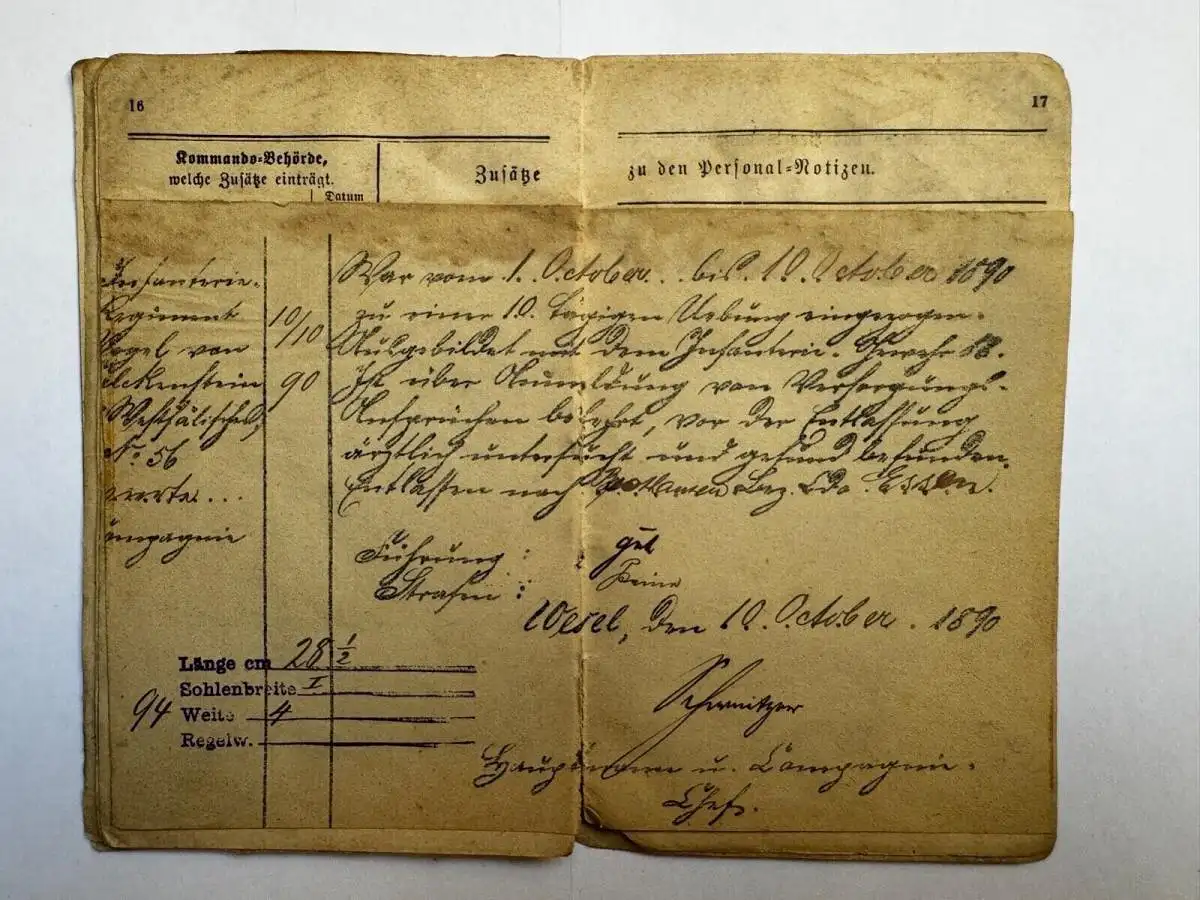 16
17
Kommando-Behörde,
welche Zusätze einträgt.
Datum
Zusätze zu den Personal-Notizen.
Infanterie-
Regiment
Vogel von
Falckenstein
Westfälisches,
No. 56
vierte...
Compagnie
10/10
90
War vom 1. October.. bis 10. October 1890
zu einer 10. tägigen Uebung eingezogen.
Ausgebildet mit dem Infanterie-Gewehr 88.
Ist über Anmeldung von Versorgungs-
Ansprüchen belehrt, vor der Entlassung
ärztlich untersucht und gesund befunden.
Entlassen nach Bez. Cdo. Essen.
Führung: gut
Strafen: keine
Wesel, den 10. October. 1890
Hauptmann u. Compagnie-
Chef.
Länge cm 28 1/2
Sohlenbreite I
94 Weite 4
Regelw.